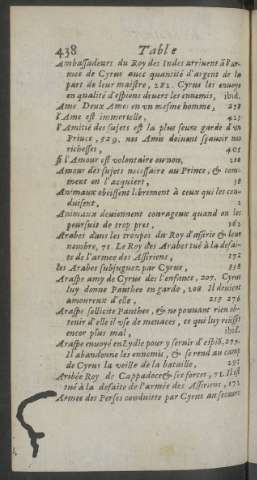 438 Table
Ambassadeurs du Roy des Indes arrivent à l'ar-
mee de Cyrus avec quantité d'argent de la
part de leur maistre, 282. Cyrus les envoye
en qualité d'espions devers les ennemis, ibid.
Ame. Deux Ames en un mesme homme, 278
l'Ame est immortelle, 427
l'Amitié des sujets est la plus seure garde d'un
Prince, 529. nos Amis doivent sçavoir nos
richesses, 405
si l'Amour est volontaire ou non, 210
Amour des sujets necessaire au Prince, & com-
ment on l'acquiert, 38
Animaux obeissent librement à ceux qui les con-
duisent, 2
Animaux deviennent courageux quand on les
poursuit de trop pres, 162
Arabes dans les troupes du Roy d'assirie & leur
nombre, 71. Le Roy des Arabes tué à la defai-
te de l'armee des Assiriens, 172
les Arabes subjuguez par Cyrus, 338
Araspe amy de Cyrus des l'enfance, 207. Cyrus
luy donne Panthee en garde, 208. Il devient
amoureux d'elle, 215 276
Araspe sollicite Panthee, & ne pouvant rien ob-
tenir d'elle il use de menaces, ce qui luy reüssit
encor plus mal, ibid.
Araspe envoyé en Lydie pour y servir d'espiō, 277.
Il abandonne les ennemis, & se rend au camp
de Cyrus la veille de la bataille, 297
Aribée Roy de Cappadoce & ses forces, 71. Il est
tué à la defaite de l'armée des Assiriens, 172
Armee des Perses conduite par Cyrus au secours